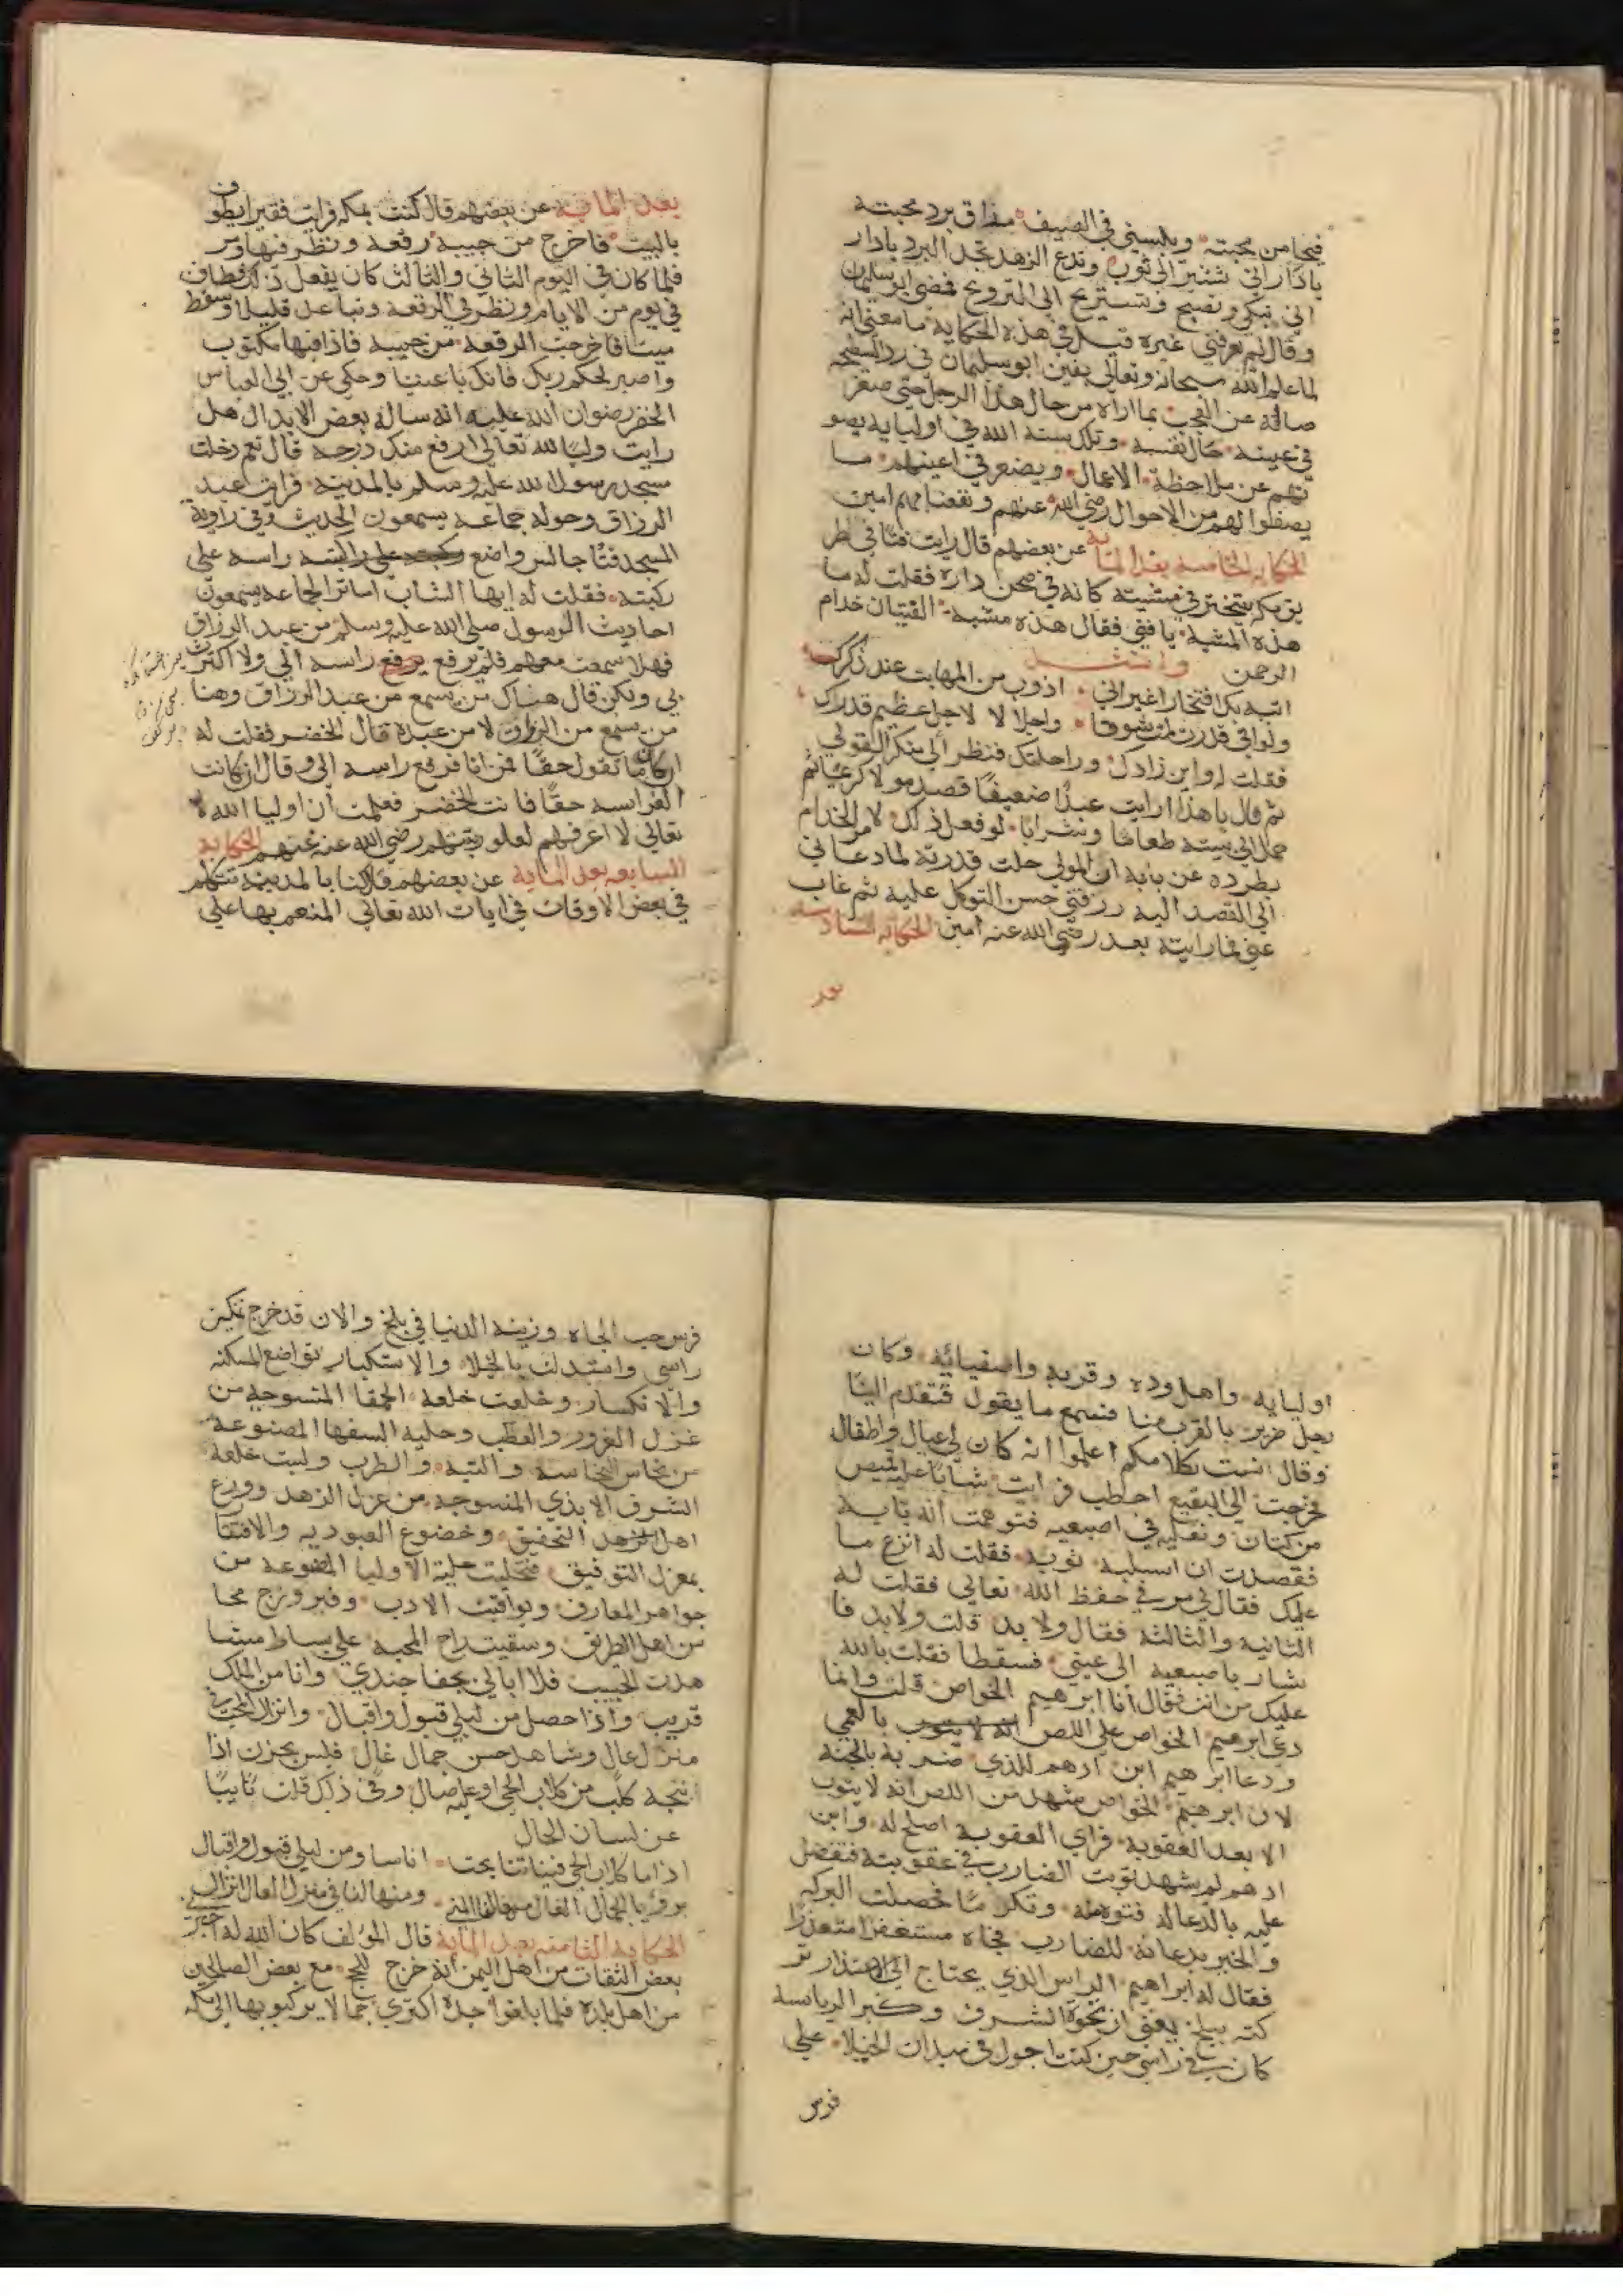 فيحا من محبته ويلبسني في الصيف مذاق برد محبته
يا دارانی تشير الى ثوب وتدع الزهد تجد البرد يا دار
اني تبكي وتصيح وتستريح الى الترويح فمضى ابو سليمان
وقال لم يعرفني غيره قيل في هذه الحكاية ما معنى انه
لما علم الله سبحانه وتعالى يقين ابو سليمان في
صانه عن العجب بما اراه من حال هذا الرجل حتى صغر
في عينه حال نفسه وتلك سنة الله في اوليايه يصو
نهم عن ملاحظة الاعمال ويصغر في اعينهم ما
يصفوا لهم من الاحوال رضي الله عنهم ونفعنا بهم امين
الحكاية الخامسة بعد الماية عن بعضهم قال رايت فتا في طر
يق مكه يتبختر في مشيته كانه في صحن داره فقلت له ما
هذه المشية يا فتى فقال هذه مشية الفتيان خدام
الرحمن وانشد
اتيه بك افتخارا غير اني اذوب من المهابت عند ذكرك
ولو اني قدرت لمت شوقا واجلا لا لاجل عظيم قدرك
فقلت له واين زادك وراحلتك فنظر الي منكر القولي
ثم قال يا هذا ارايت عبدا ضعيفا قصد مولا كريما ثم
حمل الى بيته طعاما وشرابا لو فعل ذلك لامر الخدام
بطرده عن بابه ان المولى جلت قدرته لما دعاني
الى القصد اليه رزقني حسن التوكل عليه ثم غاب
عني فما رايته بعد رضي الله عنه امين الحكاية السادسة
بعد
بعد الماية عن بعضهم قال كنت بمكه فرايت فقيرا يطوف
بالبيت فاخرج من جيبه رقعة ونظر فيها ومر
فلما كان في اليوم الثاني والثالث كان يفعل ذلك وطاف
في يوم من الايام ونظر في الرقعة وتباعد قليلا وسقط
ميتا فاخرجت الرقعة من جيبه فاذا فيها مكتوب
واصبر لحكم ربك فانك باعيننا وحكي عن ابي العباس
الخضر رضوان الله عليه انه ساله بعض الابدال هل
رايت وليا لله تعالى ارفع منك درجه قال نعم دخلت
مسجد رسول الله عليه وسلم بالمدينة فرايت عبد
الرزاق وحوله جماعة يسمعون الحديث وفي زاوية
المسجد فتا جالس واضع راسه على
ركبته فقلت له ايها الشاب اما ترا الجماعة يسمعون
احاديث الرسول صلى الله عليه وسلم من عبد الرزاق
فهلا سمعت معهم فلم يرفع يرفع راسه الي ولا اكترث
بي ولكن قال هناك من يسمع من عبد الرزاق وهنا
من يسمع من الرزاق لا من عبده قال الخضر فقلت له
ان كان ما تقول حقا فمن انا فرفع راسه الي وقال ان كانت
الفراسه حقا فانت الخضر فعلمت ان اوليا الله
تعالى لا اعرفهم لعلو رتبتهم رضي الله عنه عنهم الحكاية
السابعه بعد الماية عن بعضهم قال كنا بالمدينة نتكلم
في بعض الاوقات في ايات الله تعالى المنعم بها على
اوليايه واهل وده وقربه واصفيائه وكان
رجل ضرير بالقرب منا فسمع ما يقول فتقدم الينا
وقال انست بكلامكم اعلموا انه كان لي عيال واطفال
فخرجت الى البقيع احطب فرايت شابا عليه قميص
من كتان ونعليه في اصبعيه فتوهمت انه تايه
فقصدت ان اسلبه ثوبه فقلت له انزع ما
عليك فقال لي مر في حفظ الله تعالى فقلت له
الثانية والثالثة فقال ولا بد قلت ولا بد فا
شار باصبعيه الى عيني فسقطا فقلت بالله
عليك من انت فقال انا ابرهيم الخواص قلت وانما
دعى ابرهيم الخواص على اللص بالعمى
ودعا ابرهيم ابن ادهم للذي ضربه بالجنة
لان ابرهيم الخواص شهد من اللص انه لا يتوب
الا بعد العقوبة فراي العقوبة اصلح له وابن
ادهم لم يشهد توبت الضارب في عقوبته فتفضل
عليه بالدعا له فحصلت البركة
والخير بدعائه للضارب فجاه مستغفرا متعذرا
فقال له ابراهيم الراس الذي يحتاج الى الاعتذار تر
كته ببلخ يعني ان نخوة الشرف وكبر الرياسة
كان في راسي حين كنت اجول في ميدان الخيلا على
فرس
فرس حب الجاه وزينة الدنيا في بلخ والان قد خرج تكبر
راسي وابتدلت بالخيلا والاستكبار تواضع المسكنة
والانكسار وخلعت خلعة الحمقا المنسوجه من
غزل الغرور والعطب وحلية السفها المصنوعة
من نحاس النحاسة والتيه والطرب ولبست خلعة
الشرف الابدي المنسوجه من غزل الزهد وورع
اهل التحقيق وخضوع العبودية والافتقا
بمغزل التوفيق فتحليت حلية الاوليا المصنوعة من
جواهر المعارف ويواقيت الادب وفيروزج
من اهل الطريق وسقيت راح المحبة على بساط
هدت الحبيب فلا ابالي بجفا جندي وانا من الملك
قريب واذا حصل من ليلى قبول واقبال وانزال المحب في
منزل عال وشاهد حسن جمال غال فليس يحزن اذا
نبحه كلب من كلاب الحي او عليه صال وفي ذلك قلت نايبا
عن لسان الحال
اذا ما كلاب الحي فينا تنابحت اناسا ومن ليلى قبول واقبال
ومنها لنا في منزل العال انزال
الحكاية الثامنه بعد الماية قال المؤلف كان الله له اخبر
بعض الثقات من اهل اليمن انه خرج للحج مع بعض الصالحين
من اهل بلده فلما بلغوا جدة اكتري جمالا يركبو بها الى مكه